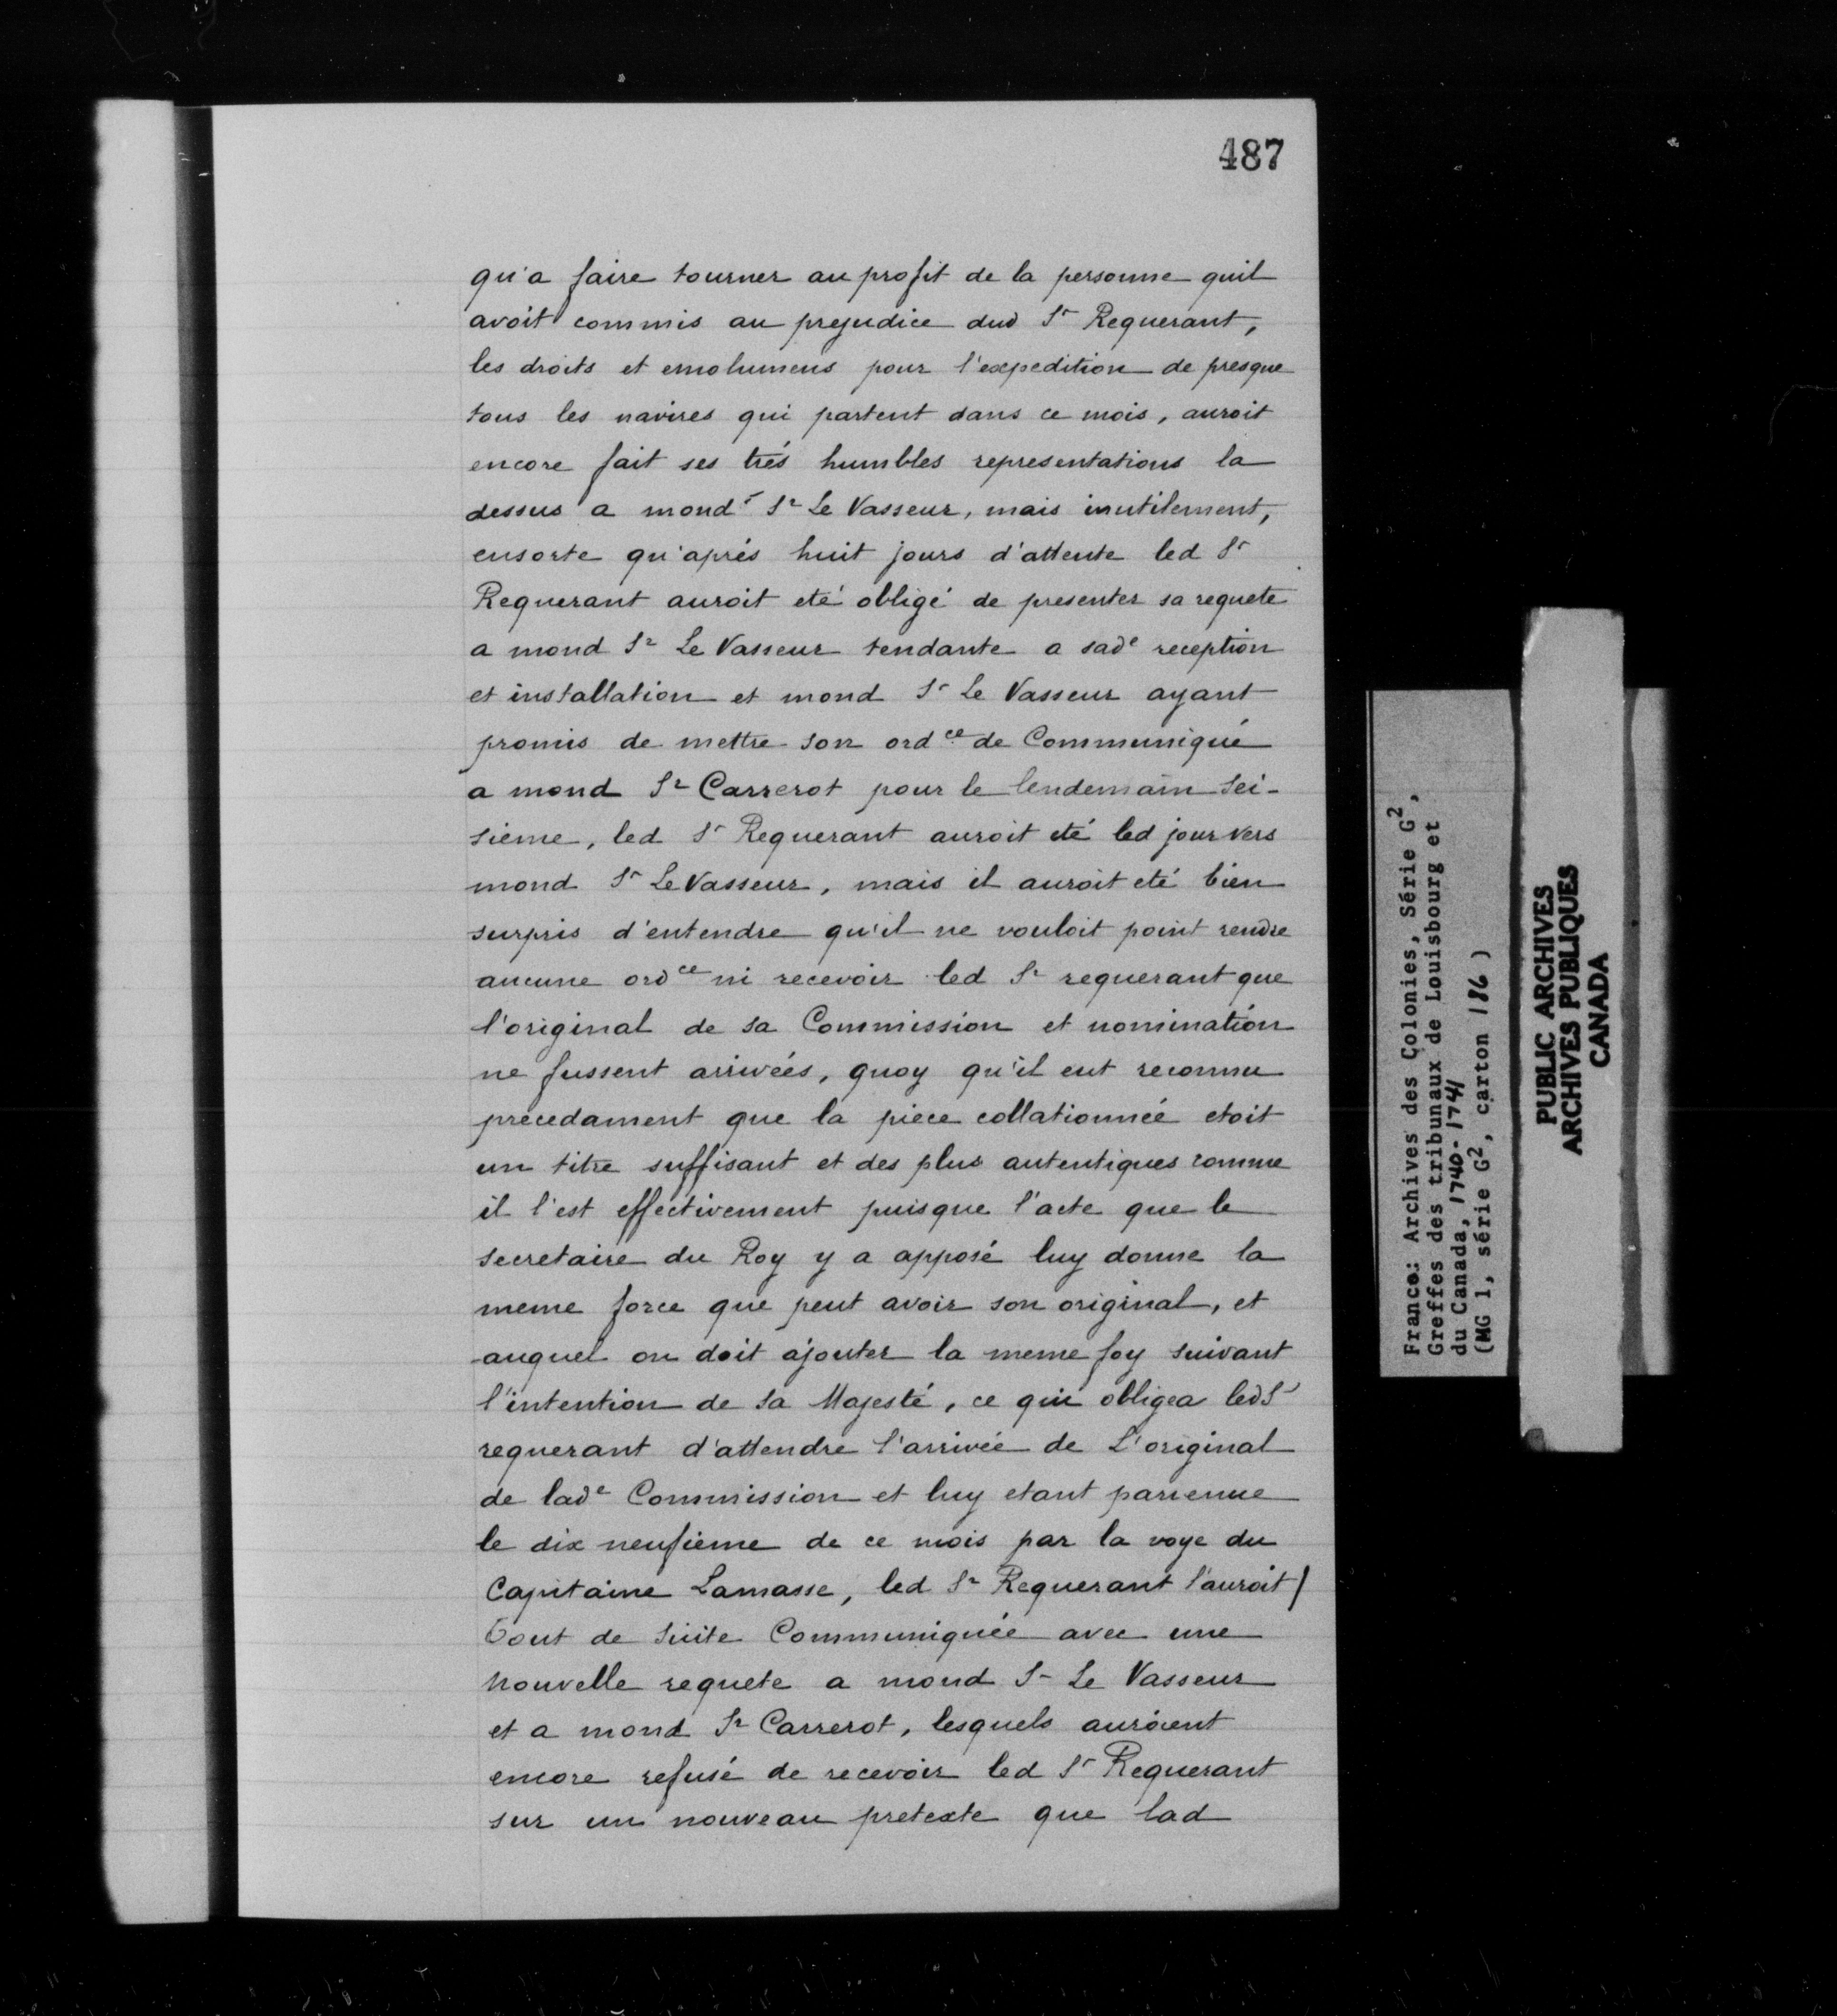 487
qu'a faire tourner au profit de la personne quil
avoit commis au prejudice dud Sr Requerant,
les droits et emolumens pour l'expedition de presque
tous les navires qui partent dans ce mois, auroit
encore fait ses trés humbles representations la
dessus a mond Sr Le Vasseur, mais inutilement,
ensorte qu'aprés huit jours d'attente led Sr
Requerant auroit eté obligé de presenter sa requete
a mond Sr Le Vasseur tendante a sade reception
et installation et mond Sr Le Vasseur ayant
promis de mettre son ordce de Communiqué
a mond Sr Carrerot pour le lendemain sei-
sieme, led Sr Requerant auroit eté led jour vers
mond Sr Le Vasseur, mais il auroit eté bien
surpris d'entendre qu'il ne vouloit point rendre
aucune ordce ni recevoir led Sr requerant que
l'original de sa Commission et nomination
ne fussent arrivées, quoy qu'il eut reconnu
precedament que la piece collationnée etoit
un titre suffisant et des plus autentiques comme
il l'est effectivement puisque l'acte que le
secretaire du Roy y a apposé luy donne la
meme force que peut avoir son original, et
auquel on doit ajouter la meme foy suivant
l'intention de Sa Majesté, ce qui obligea led Sr
requerant d'attendre l'arrivée de L'original
de lade Commission et luy etant parvenue
le dix neufieme de ce mois par la voye du
Capitaine Lamasse, led Sr Requerant l'auroit /
Tout de suite Communiquée avec une
nouvelle requete a mond Sr Le Vasseur
et a mond Sr Carrerot, lesquels auroient
encore refusé de recevoir led Sr Requerant
sur un nouveau pretexte que lad
France: Archives des Colonies, Série G2,
Greffes des tribunaux de Louisbourg et
du Canada, 1740-1741
(MG 1, série G2, carton 186 )
PUBLIC ARCHIVES
ARCHIVES PUBLIQUES
CANADA